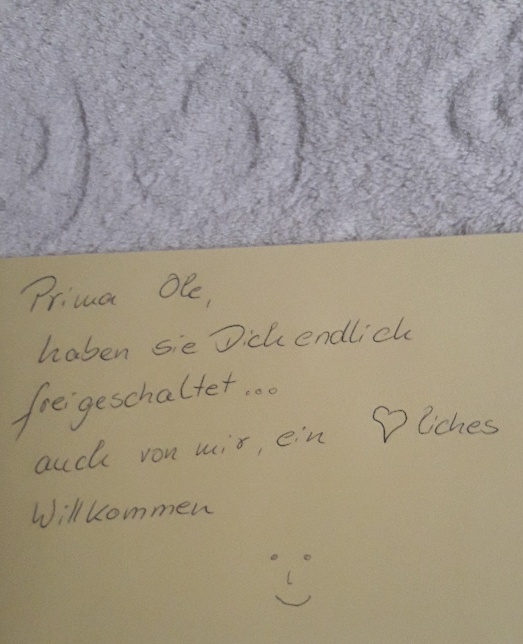 Prima Ole,
haben sie Dich endlich
freigeschaltet...
auch von mir, ein ♡liches
Willkommen